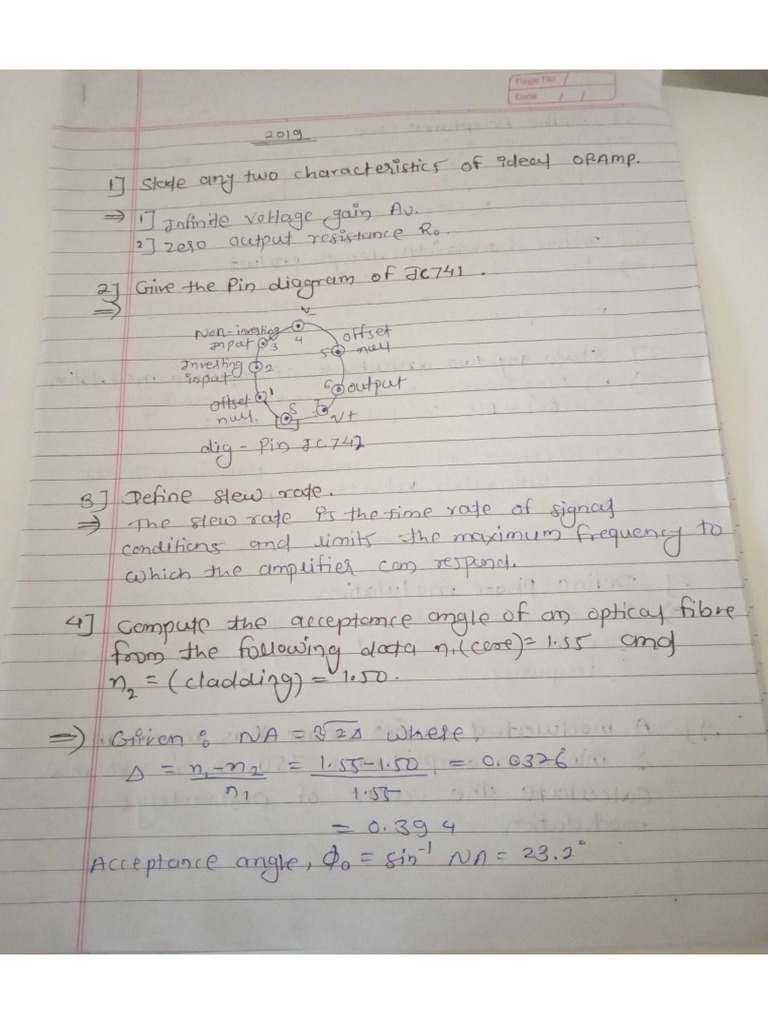 Page No.
Date / /
2019
1] State any two characteristics of ideal OPAMP.
⇒ 1] Infinite voltage gain Av.
2] Zero output resistance Ro.
2] Give the Pin diagram of IC741.
⇒
V-
Non-inverting
input
3
4
offset
null
5
Inverting
input
2
6 output
offset
null
1
8
7
V+
dig - Pin IC742
3] Define slew rate.
⇒ The slew rate is the time rate of signal
conditions and limits the maximum frequency to
which the amplifier can respond.
4] Compute the acceptance angle of an optical fibre
from the following data n1(core)= 1.55 and
n2 = (cladding) = 1.50.
⇒ Given : NA = √2Δ where,
Δ = n1-n2 / n1 = 1.55-1.50 / 1.55 = 0.0326
= 0.394
Acceptance angle, Φo = sin⁻¹ NA = 23.2°